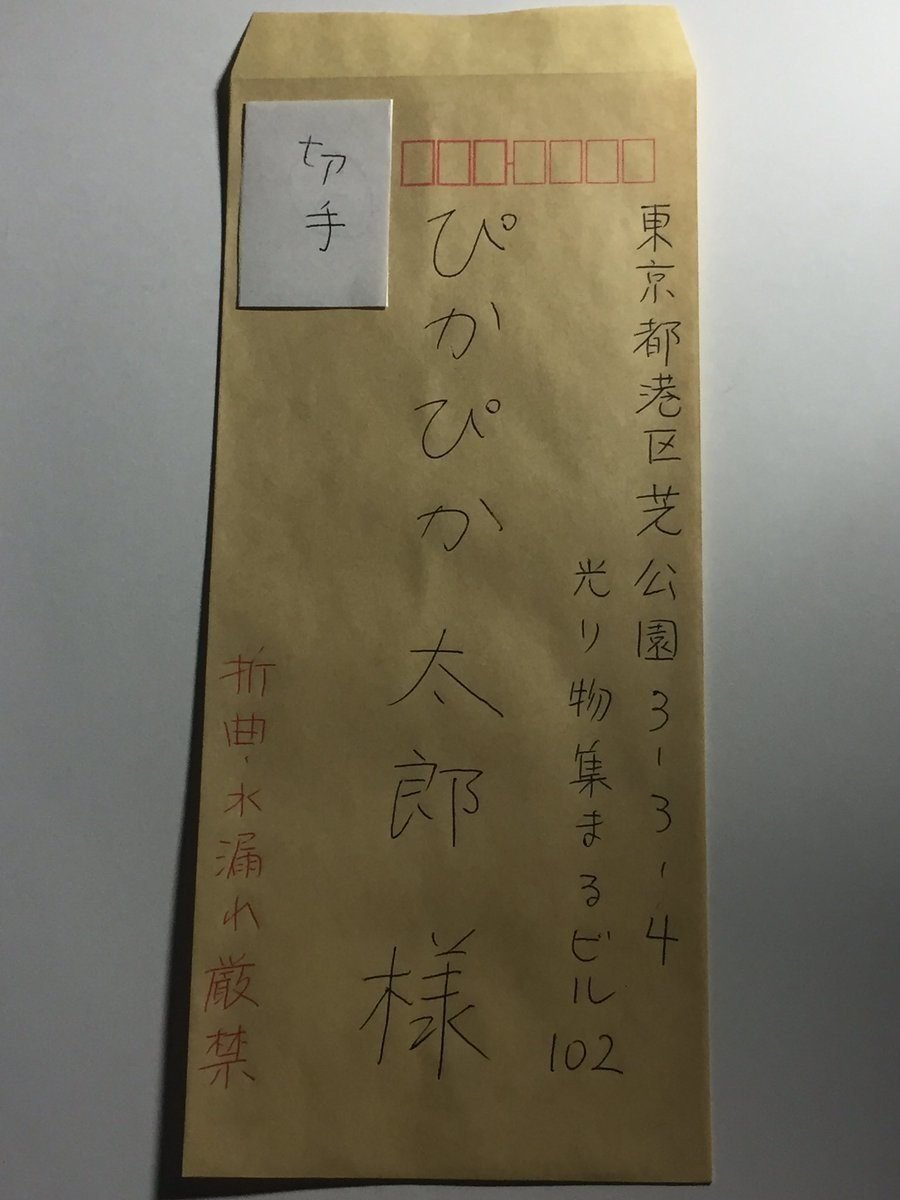 東京都港区芝公園3-3-4
光り物集まるビル102
ぴかぴか太郎様
切手
折曲・水漏れ厳禁